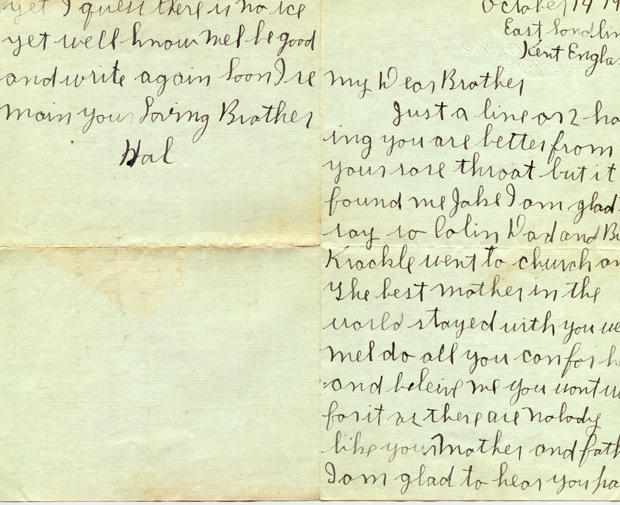 yet I guest there is no ice
yet well know Mel be good
and write again Soon I re
main your Loving Brother
Hal
October 14 19
East Sandlin
Kent Engla
My Dear Brother
Just a line or 2 ho
ing you are better from
your sore throat but it
found me Jake I am glad
say so Colin Dad and Bu
Krackle went to church an
The best mother in the
world stayed with you we
Mel do all you can for h
and beleive me you wont
for it as there are nobody
like your Mother and fath
I am glad to hear you